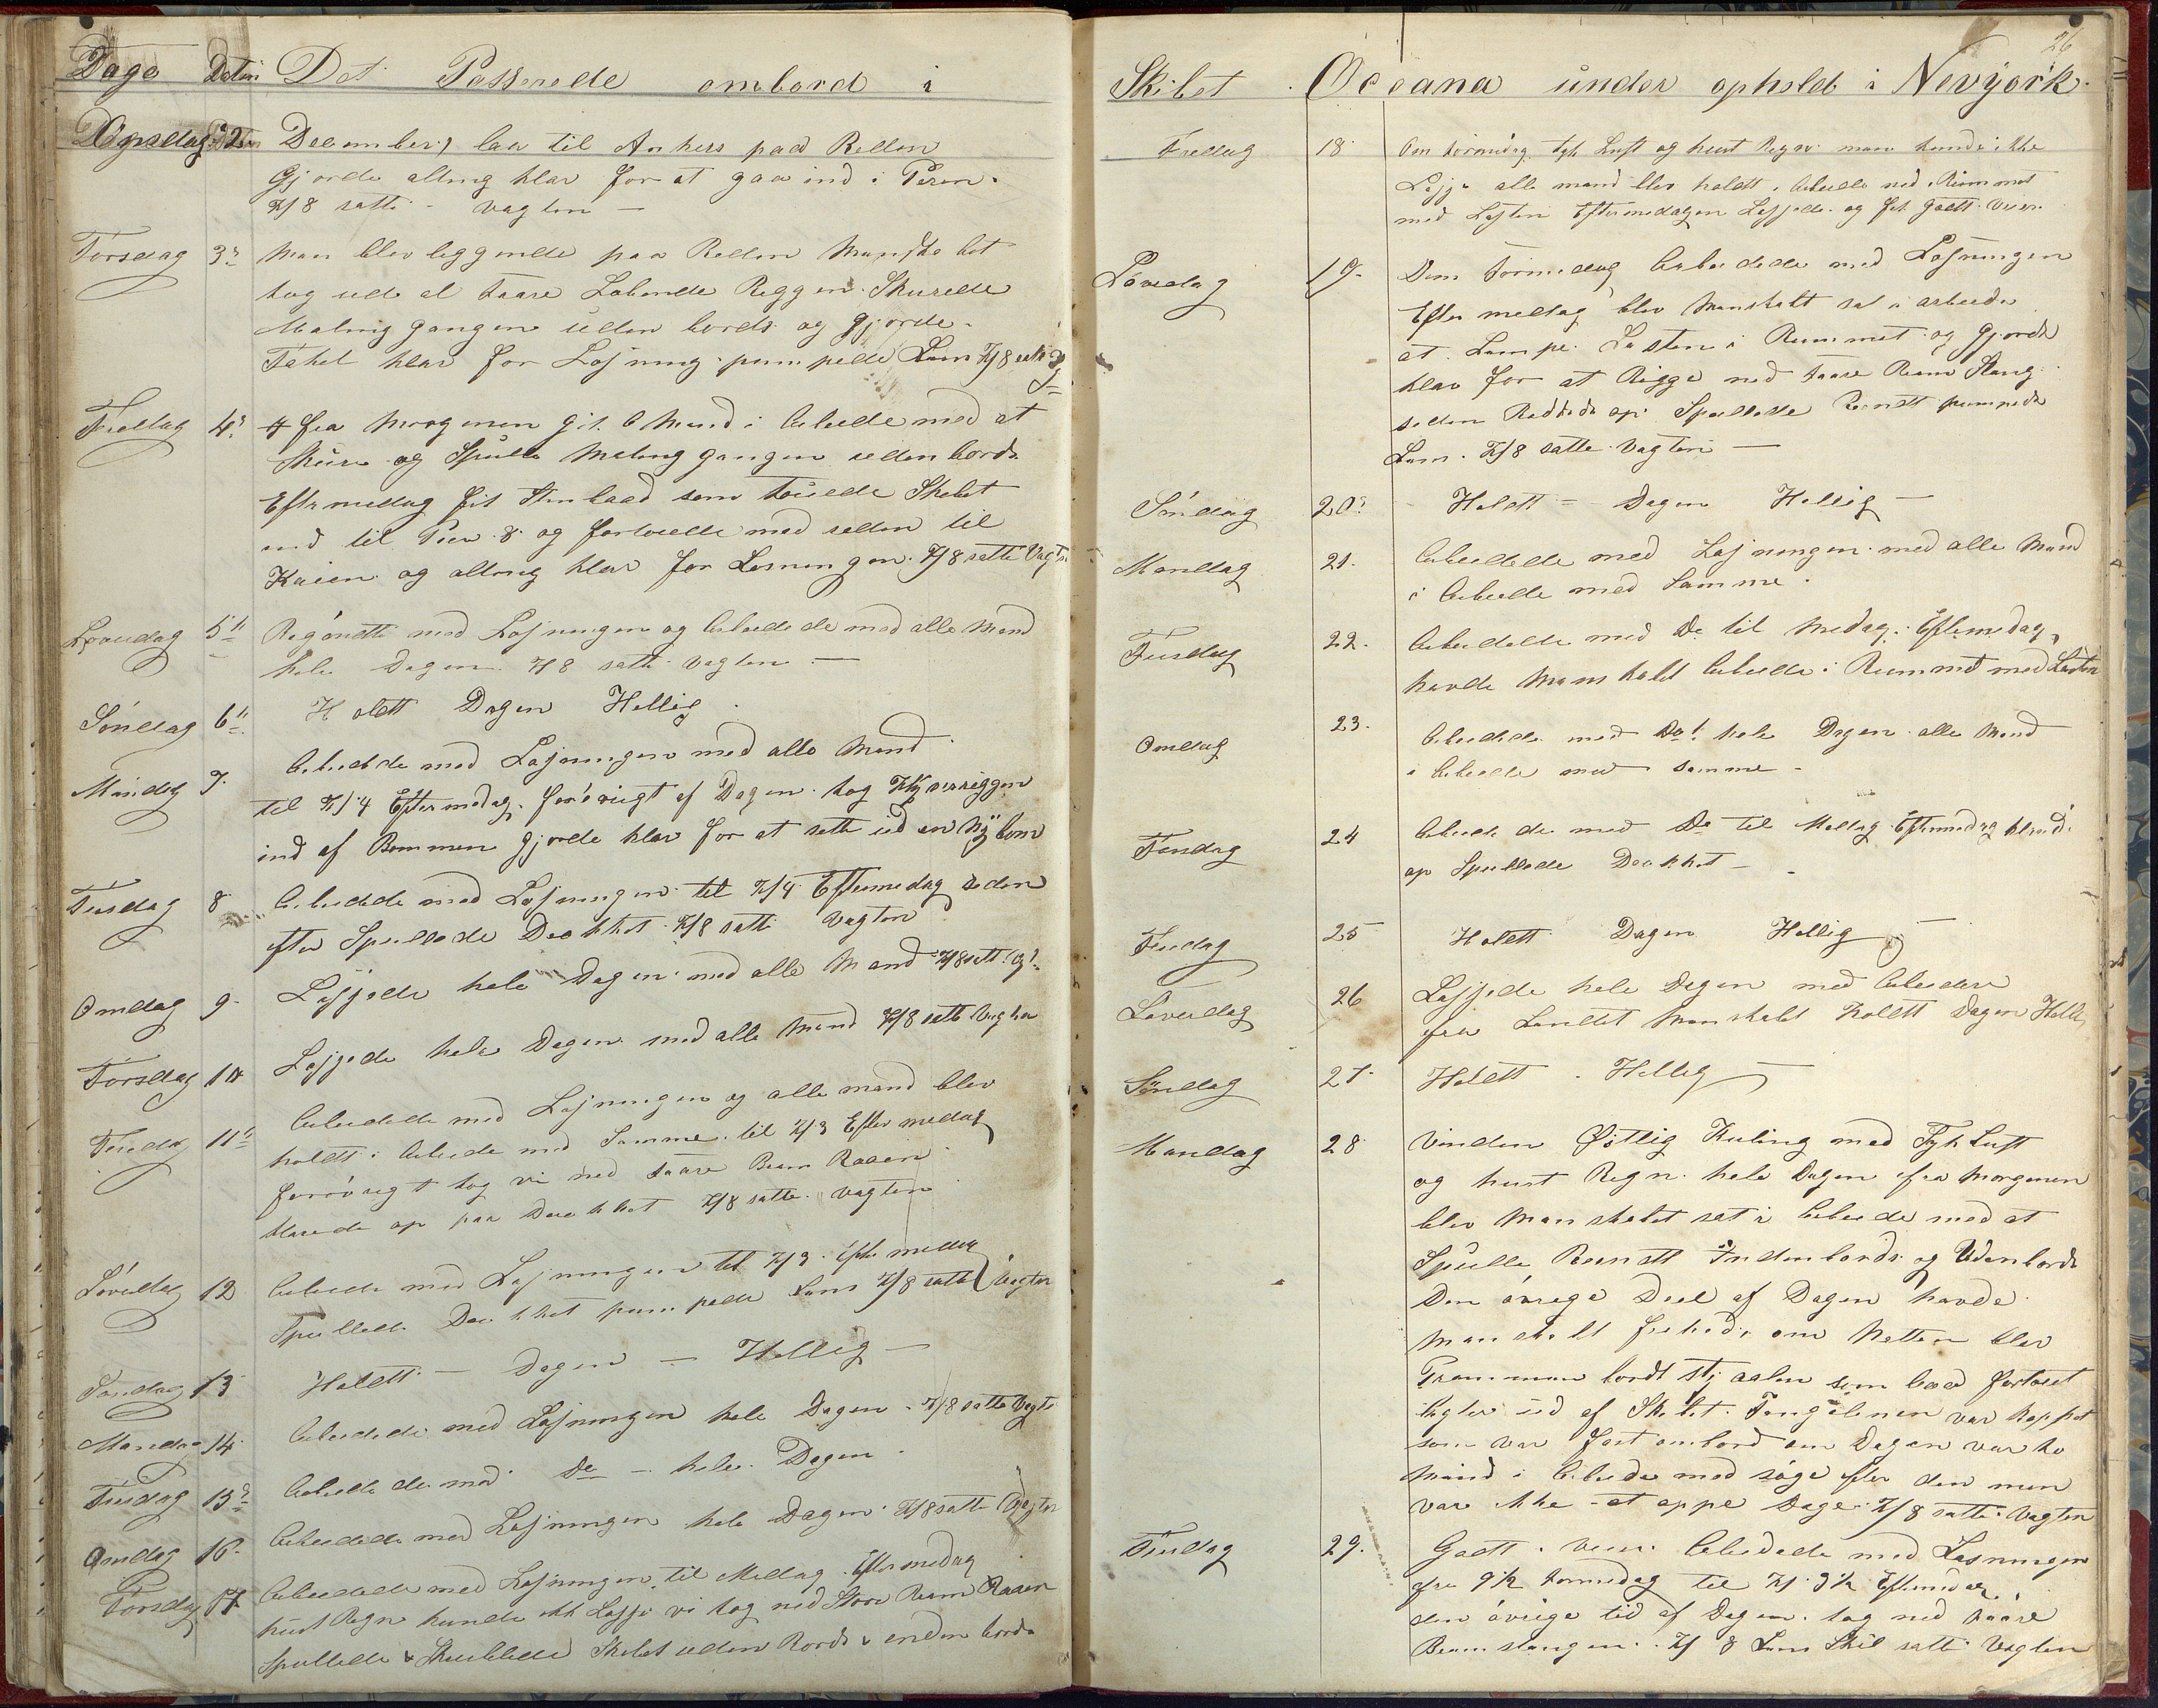 Dage Datum Det Passerede ombord i
Onsdag 2 December laa til Ankers paa Reden
Gjorde alting klar for at gaa ind i Peren.
Kl 8 satte - Vagten -
Torsdag 3 Man blev liggende paa Reden Manskabet
tog ud al Laare Løbende Riggen. Skurede
Maling gangen uden bords og gjorde
Takel klar for Losning pumpede Læns Kl 8 satte
Fredag 4 fra Morgenen gik 6 Mand i Arbeide med at
Skure og Spule Maling gangen uden bords
Eftermedag fik Stimbaad som touede Skibet
ind til Pier 8 og fortoiede med siden til
Kaien og alting klar for Losningen. Kl 8 satte Vagten
Løverdag 5 Begøndte med Losningen og Arbeidede med alle Mand
hele Dagen Kl 8 satte Vagten -
Søndag 6 Holdtt Dagen Hellig
Mandag 7 Arbeidede med Losningen med alle Mand
til Kl 4 Eftermedag. forøvrigt af Dagen tog Klyverriggen
ind af Bommen gjorde klar for at sette ud en Ny bom
Tirsdag 8 Arbeidede med Losningen til Kl 4 Eftermedag siden
efter Spullede Dækket Kl 8 satte Vagten
Omdag 9 Lossede hele Dagen med alle Mand Kl 8 satt
Torsdag 10 Lossede hele Dagen med alle Mand Kl 8 satte Vagten
Fredag 11 Arbeidede med Losningen og alle mand blev
holdtt i Arbeide med Samme til Kl 3 Eftermedag
forøvrigt tog vi ned Faare Bram Raaen
klarede op paa Dækket Kl 8 satte Vagten
Løverdag 12 Arbeide med Losningen til Kl 3 Eftermedag
Spullede Dækket pumpede Læns Kl 8 satte Vagten
Søndag 13 Holdtt - Dagen - Hellig -
Mandag 14 Arbeidede med Losningen hele Dagen. Kl 8 satte Vagten
Tirsdag 15 Arbeidede med Do - hele Dagen
Omdag 16 Arbeidede med Losningen hele Dagen Kl 8 satte Vagten
Torsdag 17 Arbeidede med Losningen til Medag. Eftermedag
hust Regn kunde ikk Losse vi tog ned Store Bram Raaen
Spullede & Skrubbede Skibet uden Bords & inden bords
26
Skibet Oceana under ophold i Nevyork.
Fredag 18 Om Formidag tyk Luft og hust Regn man kunde ikke
Losse alle mand blev holdtt i Arbeide ned i Rummet
med Lasten Eftermedagen Lossede og fik Godtt Veir
Løverdag 19 Om Formedag Arbeidede med Losningen
Eftermedag blev Manskabt sat i arbeide
at Lempe Lasten i Rummet og Gjorde
klar for at Rigge ned Faare Bram Stang
siden Ryddede op Spullede Rundt pumpede
Læns. Kl 8 satte Vagten -
Søndag 20 Holdtt - Dagen Hellig -
Mandag 21 Arbeidede med Losningen med alle Mand
i Arbeide med Samme.
Tirsdag 22 Arbeidede med Do til Medag. Eftemedag
havde Manskabet Arbeide i Rummet med Lasten
Omdag 23 Arbeidede med Do hele Dagen alle Mand
i Arbeide med samme -
Torsdag 24 Arbeidede med Do til Medag Eftermedag klarede
op Spullede Dækket -
Fredag 25 Holdtt Dagen Hellig -
Løverdag 26 Lossede hele Dagen med Arbeidere
fra Landet Manskabt Holdtt Dagen Hellig
Søndag 27 Holdtt. Hellig -
Mandag 28 Vinden Østlig Kuling med Tyk Luft
og hust Regn hele Dagen fra Morgenen
blev Manskabet sat i Arbeide med at
Spulle Rundtt Indenbords og Udenbords
Den øvrige Deel af Dagen havde
Manskabt frihed. om Natten blev
Prammen bordt stjaalen som laae fortøiet
agter ud af Skibet. Fangelinen var kappet
som var fast ombord om Dagen var to
Mand i Arbeide med søge efter den men
var ikke at oppe Dage Kl 8 satte Vagten
Tirsdag 29 Godtt Veir Arbeidede med Losningen
fra 9 1/2 Formedag til Kl 3 1/2 Eftermedag
den øvrige tid af Dagen tog ned Faare
Bram stangen. Kl 8 Læns Skib satte Vagten